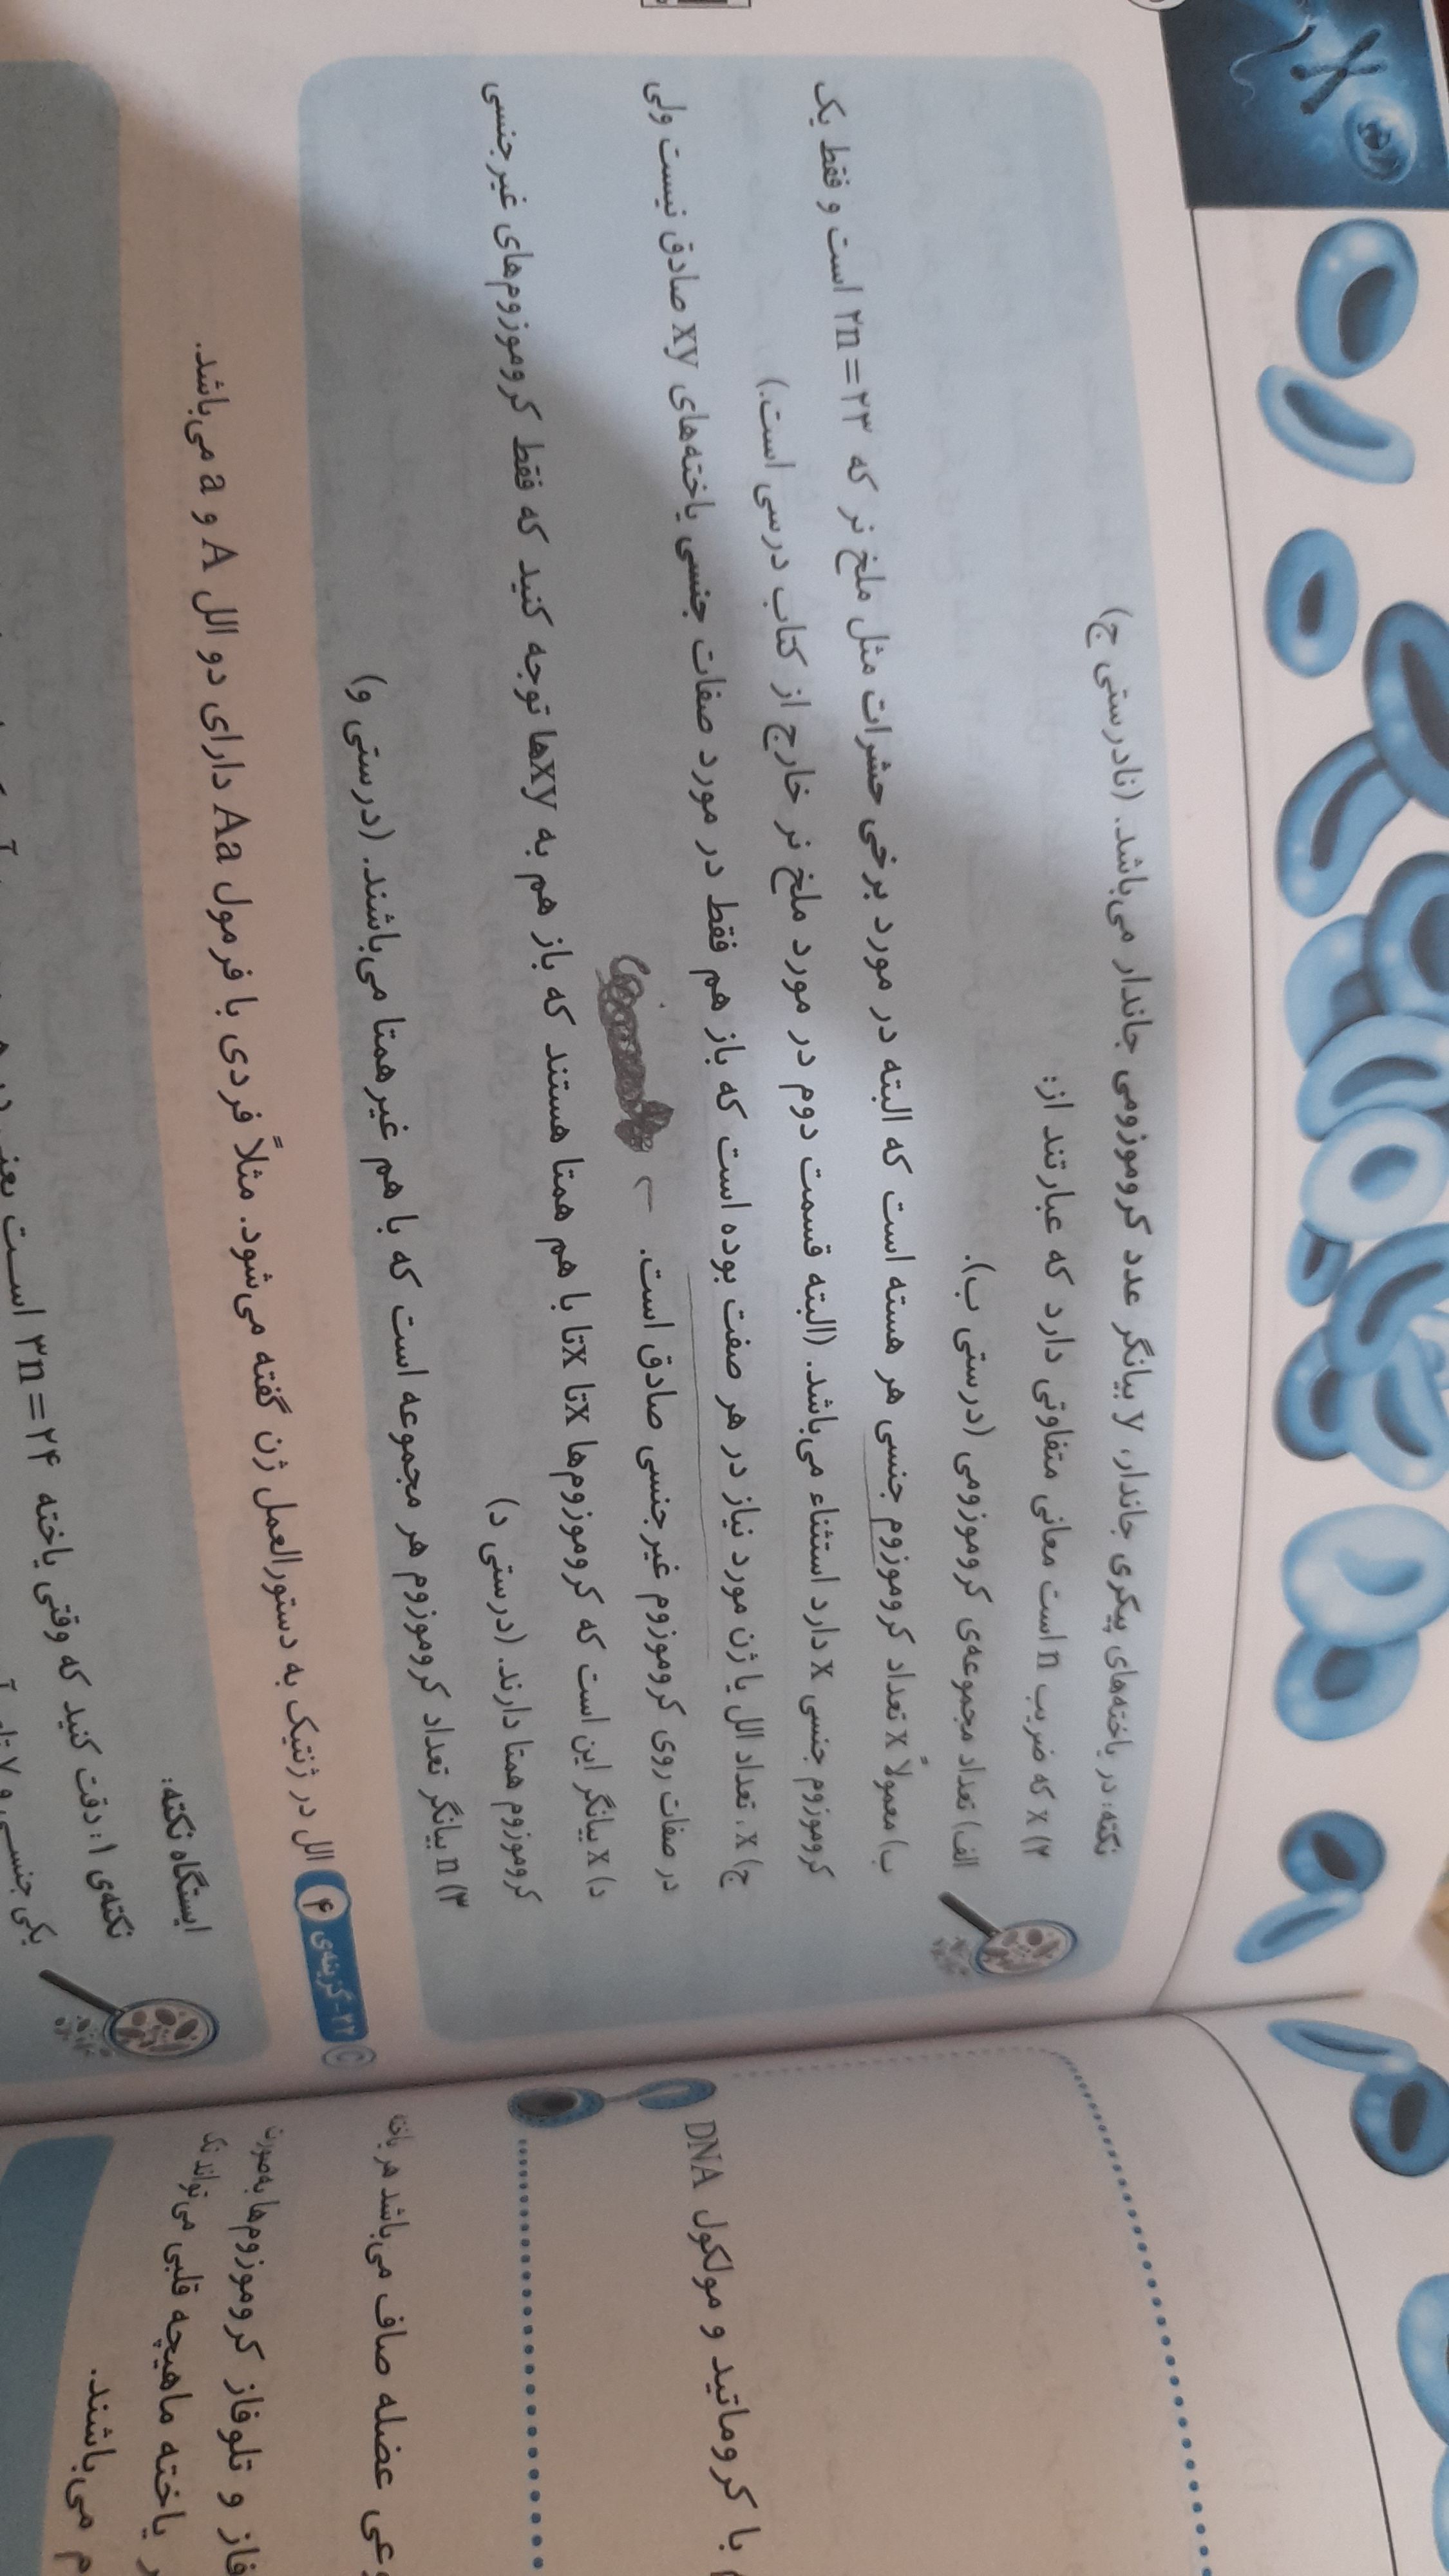 نکته: در یاخته‌های پیکری جاندار، y بیانگر عدد کروموزومی جاندار می‌باشد. (نادرستی ج)
۲) x که ضریب n است معانی متفاوتی دارد که عبارتند از:
الف) تعداد مجموعه‌ی کروموزومی (درستی ب).
ب) معمولاً x تعداد کروموزوم جنسی هر هسته است که البته در مورد برخی حشرات مثل ملخ نر که ۲n = ۲۳ است و فقط یک
کروموزوم جنسی x دارد استثناء می‌باشد. (البته قسمت دوم در مورد ملخ نر خارج از کتاب درسی است.)
ج) x، تعداد الل یا ژن مورد نیاز در هر صفت بوده است که باز هم فقط در مورد صفات جنسی یاخته‌های xy صادق نیست ولی
در صفات روی کروموزوم غیرجنسی صادق است.
د) x بیانگر این است که کروموزوم‌ها xتا xتا با هم همتا هستند که باز هم به xyها توجه کنید که فقط کروموزوم‌های غیرجنسی
کروموزوم همتا دارند. (درستی د)
۳) n بیانگر تعداد کروموزوم هر مجموعه است که با هم غیرهمتا می‌باشند. (درستی و)
۲۲- گزینه‌ی ۴ الل در ژنتیک به دستورالعمل ژن گفته می‌شود. مثلاً فردی با فرمول Aa دارای دو الل A و a می‌باشد.
ایستگاه نکته:
نکته‌ی ۱: دقت کنید که وقتی یاخته ۳n = ۲۴ است یعنی
یکی جنسی و ۷ تای
با کروماتید و مولکول DNA
عضله صاف می‌باشد هر
و تلوفاز کروموزوم‌ها به‌صورت
یاخته ماهیچه قلبی می‌تواند
می‌باشند.